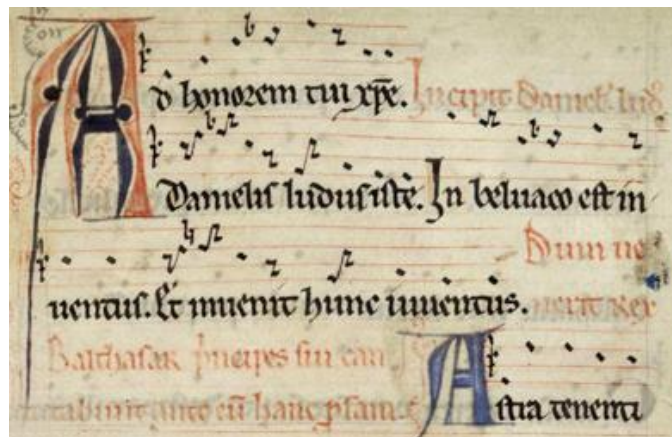 Ad honorem tui xp̄e. Incipit Daniel' lud'
Danielis ludus iste. In beluaco est in
Dum ue
uentus. Et inuenit hunc iuuentus. nerit Rex
Balthasar p̄ncipes sui can
tabunt ante eū hanc ꝓsam Astra tenenti